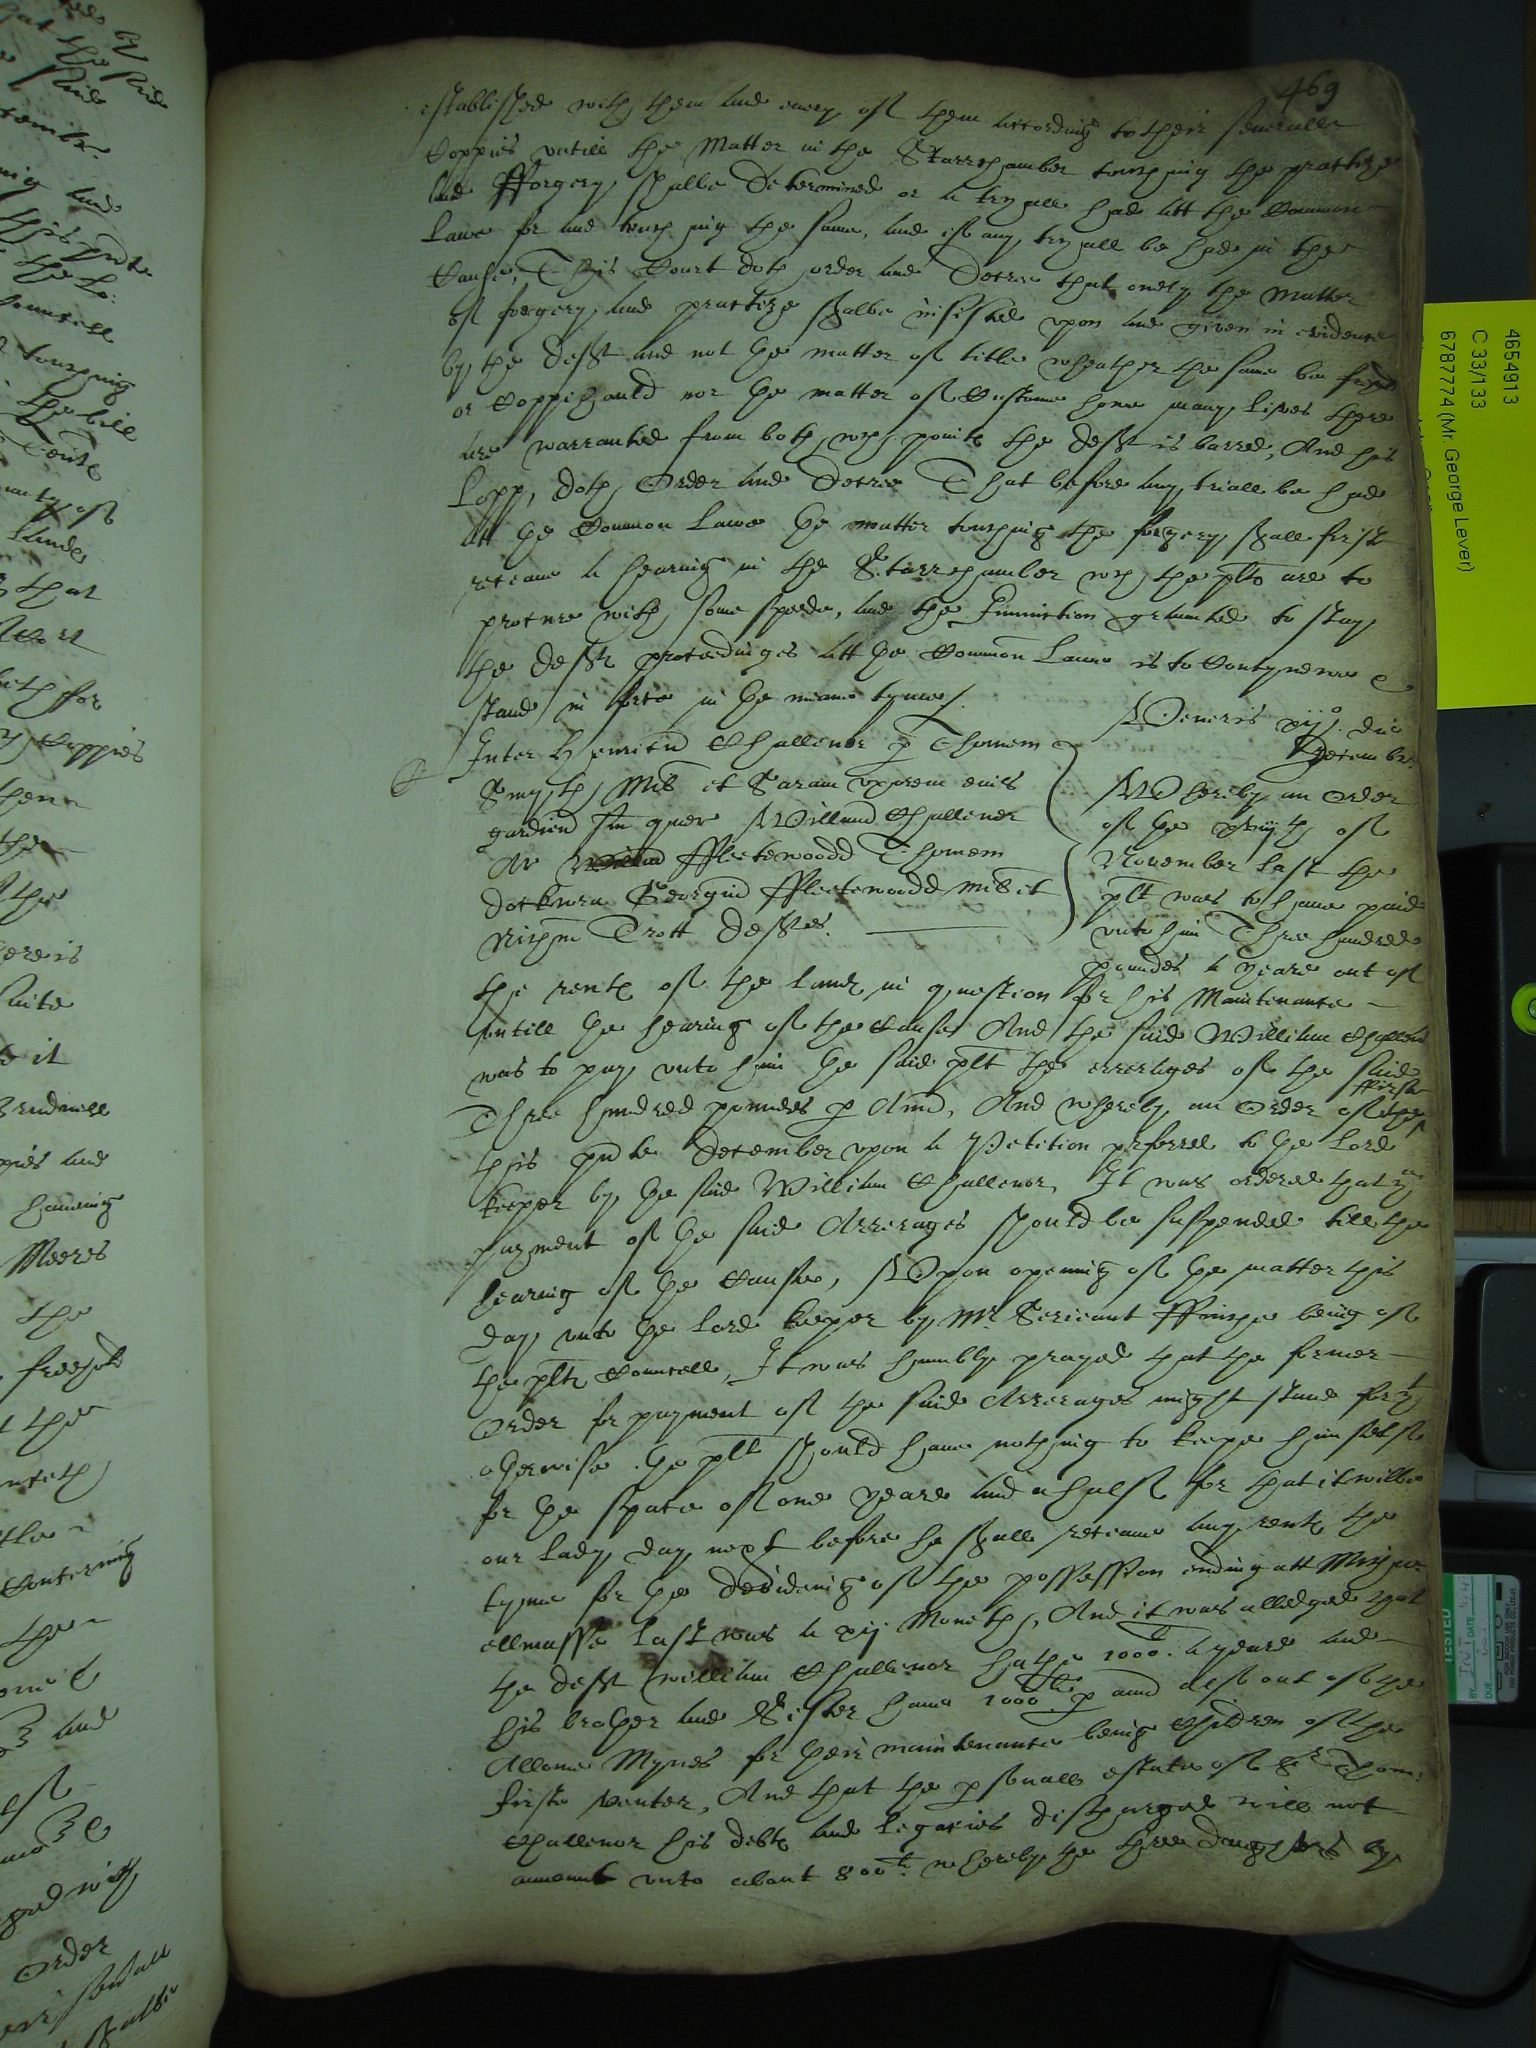 469
established with them and every of them according to their severall
Coppies untill the Matter in the Starrchamber touching the practize
and Fforgery shalbe determined or a tryall had att the Common
Lawe for and touching the same, and if any tryall be had in the
Cause, This Court doth order and Decree that onely the Matter
of forgery and practize shalbe insisted upon and given in evidence
by the defft and not the matter of title wheather the same be free
or Coppihould nor the matter of Custome howe many lives there
are warranted from both wch points the defft is barred, And his
Lopp, doth Order and Decree That before any triall be had
att the Common Lawe the matter touching the forgery shall first
receave a hearing in the Starrchamber wch the plts are to
procure with some speede, and the Iniunction graunted to stay
the deffts proceedinges att the Common Lawe is to Contynewe &
stand in force in the meane tyme /.
Veneris xijo die
Decembr.
Inter Henricu Challenor p Thomam
Smyth Mil et Saram uxorem eius
gardian suu quer Willmu Challenor
Ar Willmu Ffleetewoodd Thomam
Dockwra Georgiu Ffleetewoodd mil et
Nichm Trott defftes.
Whereby an Order
of the xxviijth of
November last the
plt was to have paid
unto him Three hundred
poundes a yeare out of
the rents of the lands in question for his Maintenance
untill the hearing of the Cause And the said William Challenor
was to pay unto him the said plt the arrerages of the said
Three hundred poundes p Annu, And whereby an Order of the first
this pnte December upon a Peticion preferred to the Lord
keeper by the said William Challenor, It was ordered that ye
payment of the said Arrerages should be suspended till the
hearing of the Cause, Upon opening of the matter this
day unto the Lord keeper by Mr Serieant Ffinche being of
the plts Councell, It was humbly prayed that the former
Order for payment of the said Arrerages might stand for yt
otherwise the plt should have nothing to keepe himselfe
for the space of one yeare and a half for that it wilbe
our Lady day next before he shall receave any rents the
tyme for the devideing of the possession ending att Micha
ellmasse last was a xij Moneth, And it was alledged that
the defft William Challenor hath 1000l. a yeare and
his brother and Sister have 1000li p annu out of the
Allome Mynes for their maintenance being Children of the
firste venter, And that the psonall estate of Sr Thom:
Challenor his debts and legacies discharged will not
amount unto about 800l. whereby the three daughters by
4654913
C 33/133
67877774 (Mr. George Lever)
TESTED